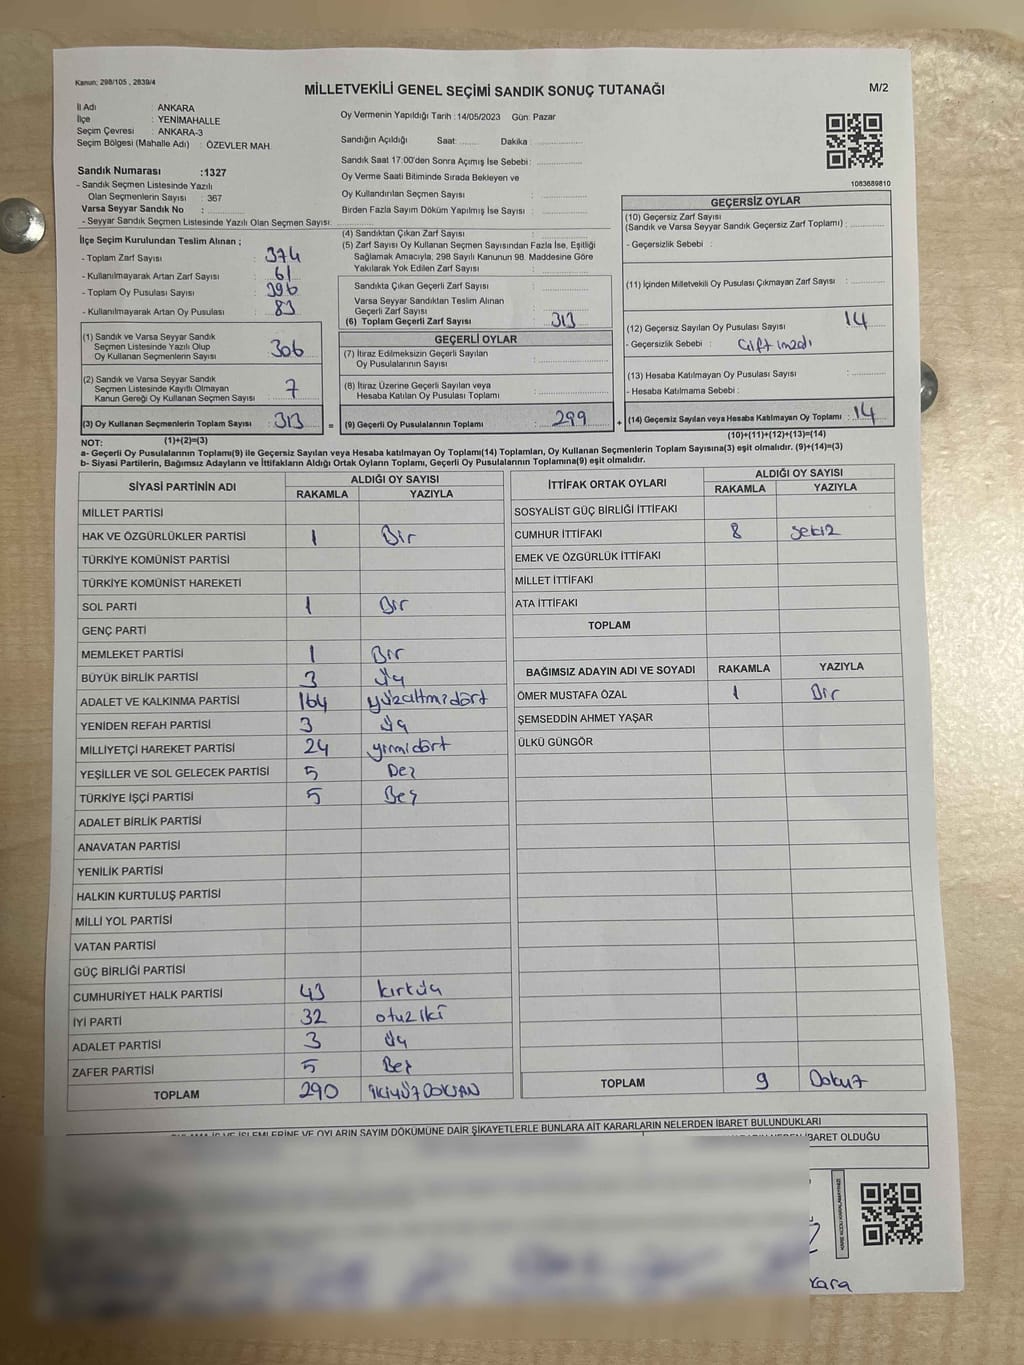 Kanun: 298/105 , 2839/4
MİLLETVEKİLİ GENEL SEÇİMİ SANDIK SONUÇ TUTANAĞI
M/2
İl Adı : ANKARA
İlçe : YENİMAHALLE
Seçim Çevresi : ANKARA-3
Seçim Bölgesi (Mahalle Adı) : ÖZEVLER MAH.
Sandık Numarası :1327
- Sandık Seçmen Listesinde Yazılı
Olan Seçmenlerin Sayısı : 367
Varsa Seyyar Sandık No :
- Seyyar Sandık Seçmen Listesinde Yazılı Olan Seçmen Sayısı:
İlçe Seçim Kurulundan Teslim Alınan ;
- Toplam Zarf Sayısı : 374
- Kullanılmayarak Artan Zarf Sayısı : 61
- Toplam Oy Pusulası Sayısı : 396
- Kullanılmayarak Artan Oy Pusulası : 83
(1) Sandık ve Varsa Seyyar Sandık
Seçmen Listesinde Yazılı Olup
Oy Kullanan Seçmenlerin Sayısı : 306
(2) Sandık ve Varsa Seyyar Sandık
Seçmen Listesinde Kayıtlı Olmayan
Kanun Gereği Oy Kullanan Seçmen Sayısı : 7
(3) Oy Kullanan Seçmenlerin Toplam Sayısı : 313
Oy Vermenin Yapıldığı Tarih :14/05/2023 Gün: Pazar
Sandığın Açıldığı Saat: Dakika :
Sandık Saat 17:00'den Sonra Açılmış İse Sebebi :
Oy Verme Saati Bitiminde Sırada Bekleyen ve
Oy Kullandırılan Seçmen Sayısı :
Birden Fazla Sayım Döküm Yapılmış İse Sayısı :
(4) Sandıktan Çıkan Zarf Sayısı :
(5) Zarf Sayısı Oy Kullanan Seçmen Sayısından Fazla İse, Eşitliği
Sağlamak Amacıyla; 298 Sayılı Kanunun 98. Maddesine Göre
Yakılarak Yok Edilen Zarf Sayısı :
Sandıkta Çıkan Geçerli Zarf Sayısı :
Varsa Seyyar Sandıktan Teslim Alınan
Geçerli Zarf Sayısı :
(6) Toplam Geçerli Zarf Sayısı : 313
GEÇERLİ OYLAR
(7) İtiraz Edilmeksizin Geçerli Sayılan
Oy Pusulalarının Sayısı :
(8) İtiraz Üzerine Geçerli Sayılan veya
Hesaba Katılan Oy Pusulası Toplamı :
= (9) Geçerli Oy Pusulalarının Toplamı : 299
1083689810
GEÇERSİZ OYLAR
(10) Geçersiz Zarf Sayısı
(Sandık ve Varsa Seyyar Sandık Geçersiz Zarf Toplamı) :
- Geçersizlik Sebebi :
(11) İçinden Milletvekili Oy Pusulası Çıkmayan Zarf Sayısı :
(12) Geçersiz Sayılan Oy Pusulası Sayısı : 14
- Geçersizlik Sebebi : Çift imzadı
(13) Hesaba Katılmayan Oy Pusulası Sayısı :
- Hesaba Katılmama Sebebi :
+ (14) Geçersiz Sayılan veya Hesaba Katılmayan Oy Toplamı : 14
NOT: (1)+(2)=(3)
(10)+(11)+(12)+(13)=(14)
a- Geçerli Oy Pusulalarının Toplamı(9) ile Geçersiz Sayılan veya Hesaba katılmayan Oy Toplamı(14) Toplamları, Oy Kullanan Seçmenlerin Toplam Sayısına(3) eşit olmalıdır. (9)+(14)=(3)
b- Siyasi Partilerin, Bağımsız Adayların ve İttifakların Aldığı Ortak Oyların Toplamı, Geçerli Oy Pusulalarının Toplamına(9) eşit olmalıdır.
SİYASİ PARTİNİN ADI ALDIĞI OY SAYISI
RAKAMLA YAZIYLA
MİLLET PARTİSİ
HAK VE ÖZGÜRLÜKLER PARTİSİ 1 Bir
TÜRKİYE KOMÜNİST PARTİSİ
TÜRKİYE KOMÜNİST HAREKETİ
SOL PARTİ 1 Bir
GENÇ PARTİ
MEMLEKET PARTİSİ 1 Bir
BÜYÜK BİRLİK PARTİSİ 3 Üç
ADALET VE KALKINMA PARTİSİ 164 yüzaltmışdört
YENİDEN REFAH PARTİSİ 3 Üç
MİLLİYETÇİ HAREKET PARTİSİ 24 yirmidört
YEŞİLLER VE SOL GELECEK PARTİSİ 5 Beş
TÜRKİYE İŞÇİ PARTİSİ 5 Beş
ADALET BİRLİK PARTİSİ
ANAVATAN PARTİSİ
YENİLİK PARTİSİ
HALKIN KURTULUŞ PARTİSİ
MİLLİ YOL PARTİSİ
VATAN PARTİSİ
GÜÇ BİRLİĞİ PARTİSİ
CUMHURİYET HALK PARTİSİ 43 kırküç
İYİ PARTİ 32 otuziki
ADALET PARTİSİ 3 Üç
ZAFER PARTİSİ 5 Beş
TOPLAM 290 İKİYÜZDOKSAN
İTTİFAK ORTAK OYLARI ALDIĞI OY SAYISI
RAKAMLA YAZIYLA
SOSYALİST GÜÇ BİRLİĞİ İTTİFAKI
CUMHUR İTTİFAKI 8 sekiz
EMEK VE ÖZGÜRLÜK İTTİFAKI
MİLLET İTTİFAKI
ATA İTTİFAKI
TOPLAM
BAĞIMSIZ ADAYIN ADI VE SOYADI RAKAMLA YAZIYLA
ÖMER MUSTAFA ÖZAL 1 Bir
ŞEMSEDDİN AHMET YAŞAR
ÜLKÜ GÜNGÖR
TOPLAM 9 Dokuz
İŞLEMLERİNE VE OYLARIN SAYIM DÖKÜMÜNE DAİR ŞİKAYETLERLE BUNLARA AİT KARARLARIN NELERDEN İBARET BULUNDUKLARI
İBARET OLDUĞU